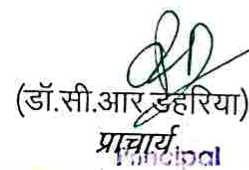 (डॉ.सी.आर.डहरिया)
प्राचार्य
Principal